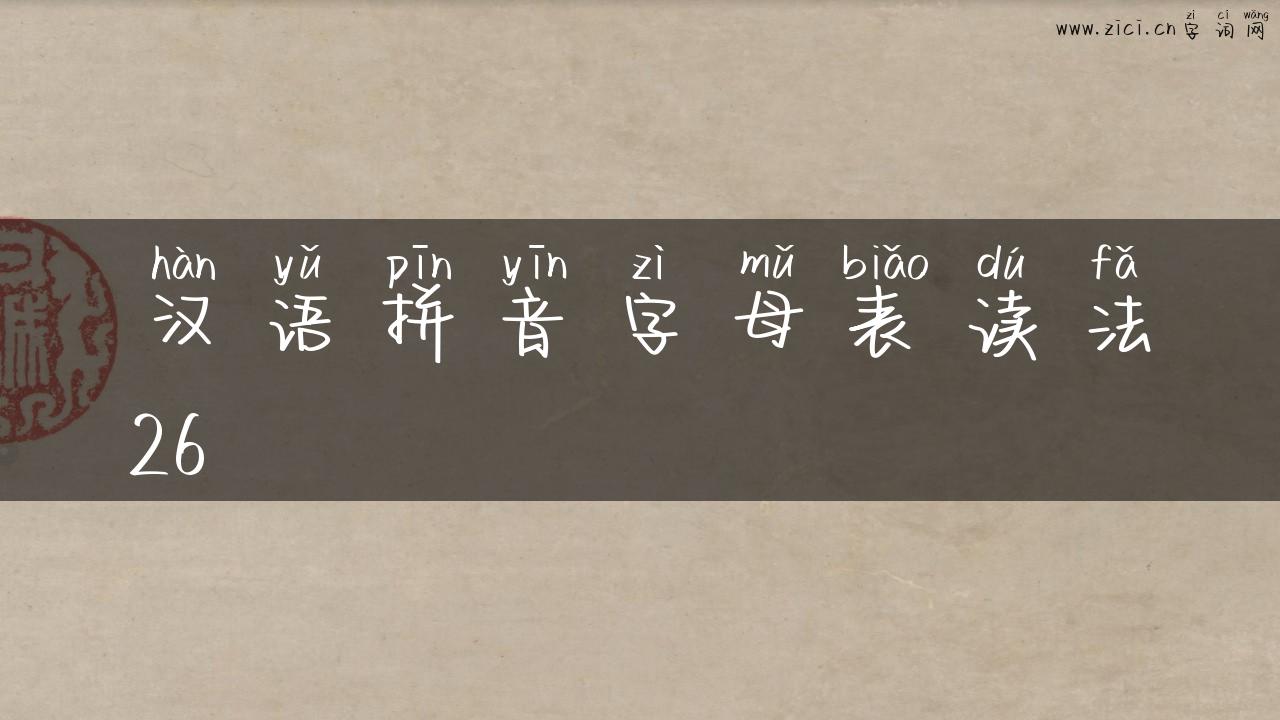 zì cí wǎng
www.zici.cn 字词网
hàn yǔ pīn yīn zì mǔ biǎo dú fǎ
汉语拼音字母表读法
26